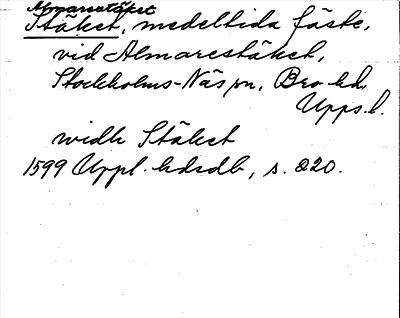 Almarestäket
Stäket, medeltida fäste,
vid Almarestäket,
Stockholms-Näs sn, Bro hd,
Upps. l.
widh Stäket
1599 Uppl. hdsdb, s. 220.